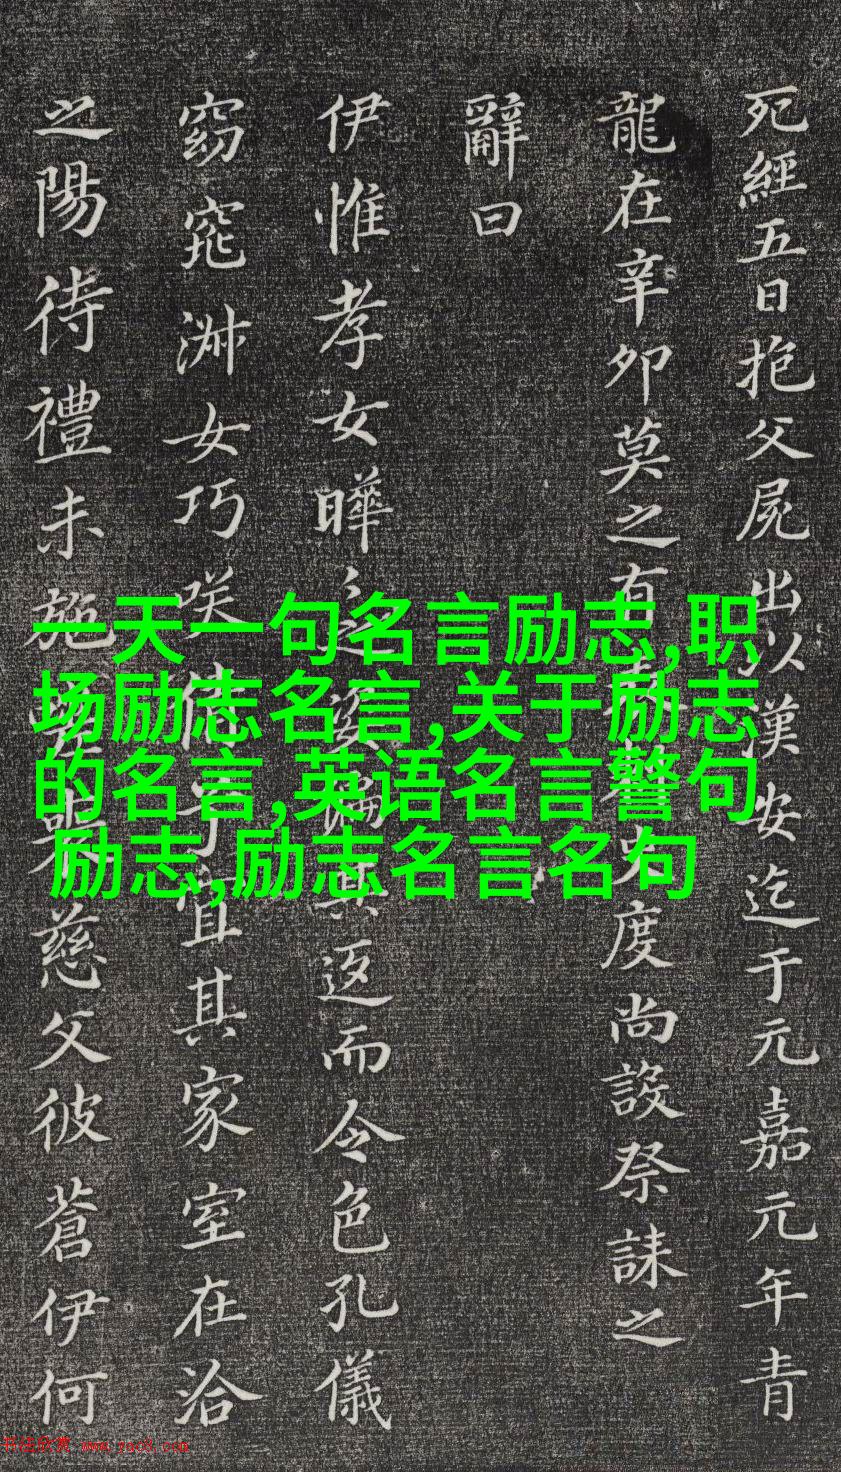 死經五日抱父屍出以漢安迄于元嘉元年青
龍在辛卯莫之有度尚設祭誄之
辭曰
伊惟孝女曄之姿偏其返而令色孔儀
窈窕淑女巧咲倩宜其家室在洽
之陽待禮未施慈父彼蒼伊何
一天一句名言励志,职
场励志名言,关于励志
的名言,英语名言警句
励志,励志名言名句
书法欣赏 www.yac8.com